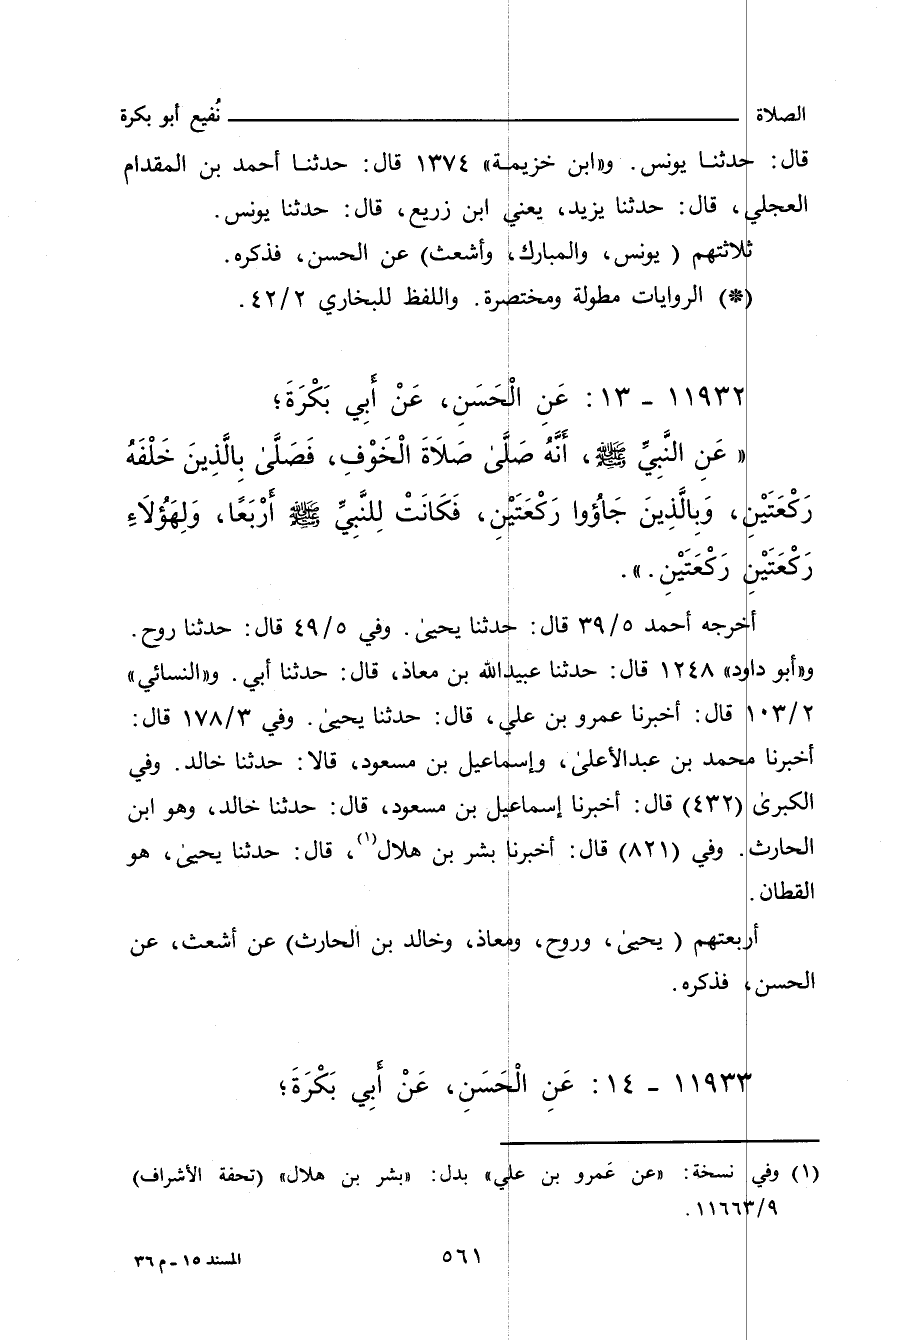 الصلاة ـــــــــــــــــــــــــــــ نُفيع أبو بكرة
قال: حدثنـا يونس. و«ابن خزيمـة» ١٣٧٤ قال: حدثنـا أحمد بن المقدام
العجلي، قال: حدثنا يزيد، يعني ابن زريع، قال: حدثنا يونس.
ثلاثتهم ( يونس، والمبارك، وأشعث) عن الحسن، فذكره.
(*) الروايات مطولة ومختصرة. واللفظ للبخاري ٤٢/٢.
١١٩٣٢ ـ ١٣: عَنِ الْحَسَنِ، عَنْ أَبِي بَكْرَةَ؛
« عَنِ النَّبِيِّ ﷺ، أَنَّهُ صَلَّىٰ صَلَاةَ الْخَوْفِ، فَصَلَّىٰ بِالَّذِينَ خَلْفَهُ
رَكْعَتَيْنِ، وَبِالَّذِينَ جَاؤُوا رَكْعَتَيْنِ، فَكَانَتْ لِلنَّبِيِّ ﷺ أَرْبَعًا، وَلِهَؤُلَاءِ
رَكْعَتَيْنِ رَكْعَتَيْنِ.».
أخرجه أحمد ٣٩/٥ قال: حدثنا يحيىٰ. وفي ٤٩/٥ قال: حدثنا روح.
و«أبو داود» ١٢٤٨ قال: حدثنا عبيدالله بن معاذ، قال: حدثنا أبي. و«النسائي»
١٠٣/٢ قال: أخبرنا عمرو بن علي، قال: حدثنا يحيىٰ. وفي ١٧٨/٣ قال:
أخبرنا محمد بن عبدالأعلىٰ، وإسماعيل بن مسعود، قالا: حدثنا خالد. وفي
الكبرىٰ (٤٣٢) قال: أخبرنا إسماعيل بن مسعود، قال: حدثنا خالد، وهو ابن
الحارث. وفي (٨٢١) قال: أخبرنا بشر بن هلال(١)، قال: حدثنا يحيىٰ، هو
القطان.
أربعتهم ( يحيىٰ، وروح، ومعاذ، وخالد بن الحارث) عن أشعث، عن
الحسن، فذكره.
١١٩٣٣ ـ ١٤: عَنِ الْحَسَنِ، عَنْ أَبِي بَكْرَةَ؛
(١) وفي نسخة: «عن عَمرو بن علي» بدل: «بشر بن هلال» (تحفة الأشراف)
١١٦٦٣/٩.
٥٦١
المسند ١٥ ـ م ٣٦